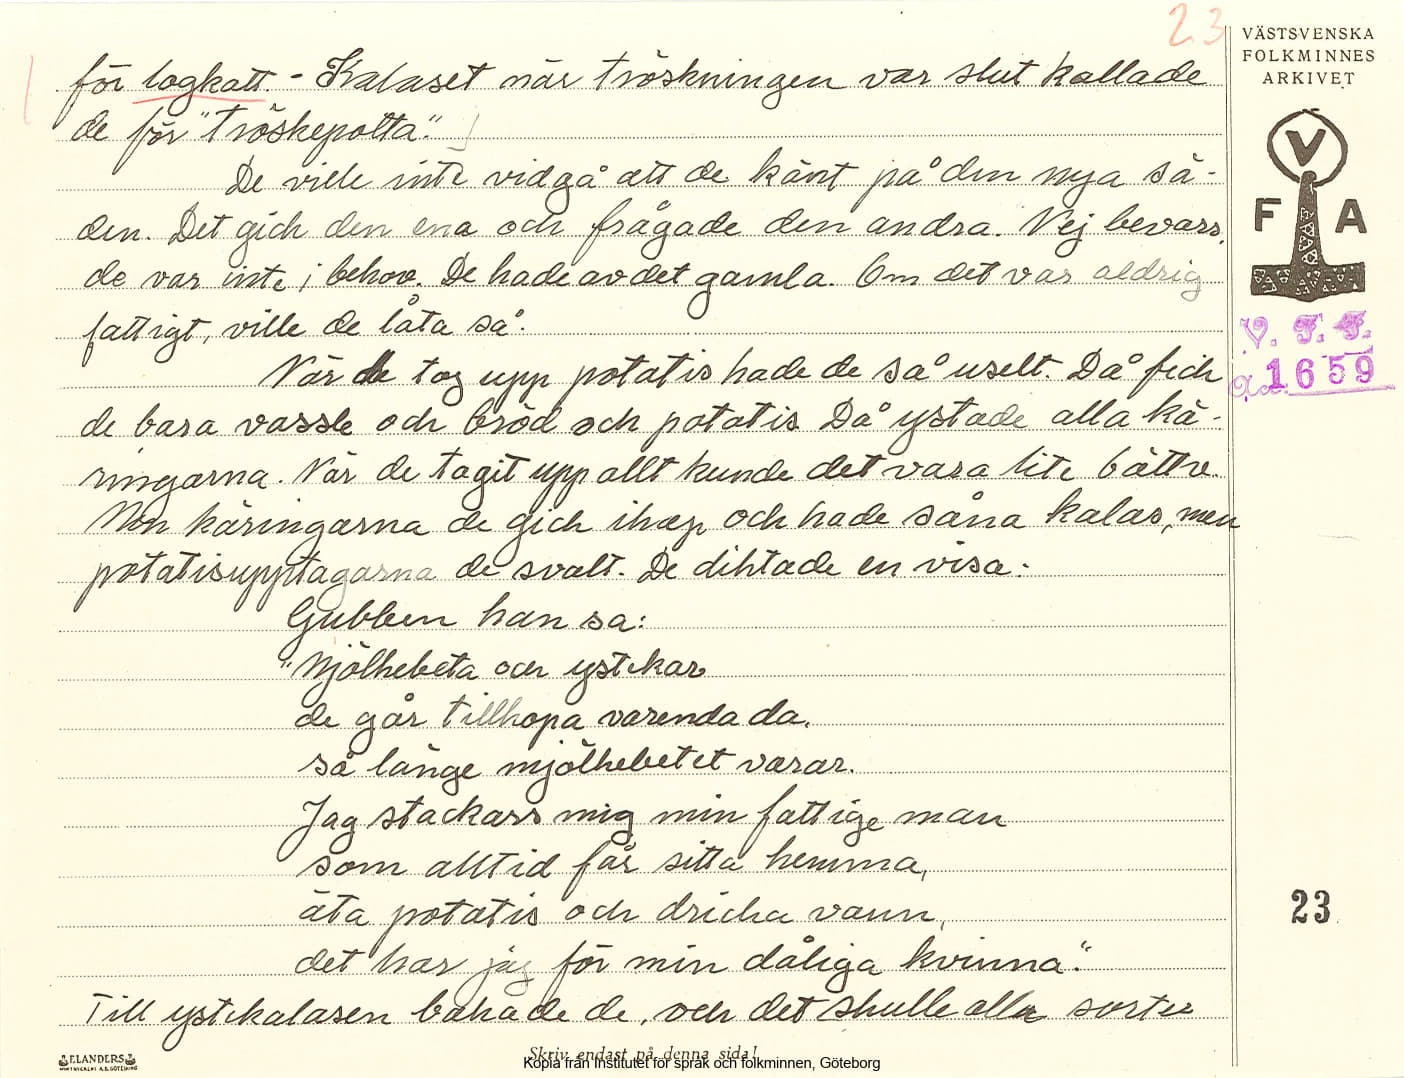 23
VÄSTSVENSKA
FOLKMINNES
ARKIVET
för logkatt. - Kalaset när tröskningen var slut kallade
de för "Tröskepotta".
De ville inte vidgå att de känt på den nya sä-
den. Det gick den ena och frågade den andra. Nej bevars,
de var inte i behov. De hade av det gamla. Om det var aldrig
fattigt, ville de låta så.
När de tog upp potatis hade de så uselt. Då fick
de bara vassle och bröd och potatis. Då ystade alla kä-
ringarna. När de tagit upp allt kunde det vara lite bättre.
Men käringarna de gick ihop och hade såna kalas, men
potatisupptagarna de svalt. De diktade en visa:
Gubben han sa:
"Mjölkebeta och ystekar
de går tillhopa varenda da,
så länge mjölkebetet varar.
Jag stackars mig min fattige man
som alltid får sitta hemma,
äta potatis och dricka vann,
det har jag för min dåliga kvinna".
Till ystekalasen bakade de, och det skulle alla sorter
V
F A
V. F. F.
1659
23
ELANDERS
Skriv endast på denna sida!
Kopia från Institutet för språk och folkminnen, Göteborg